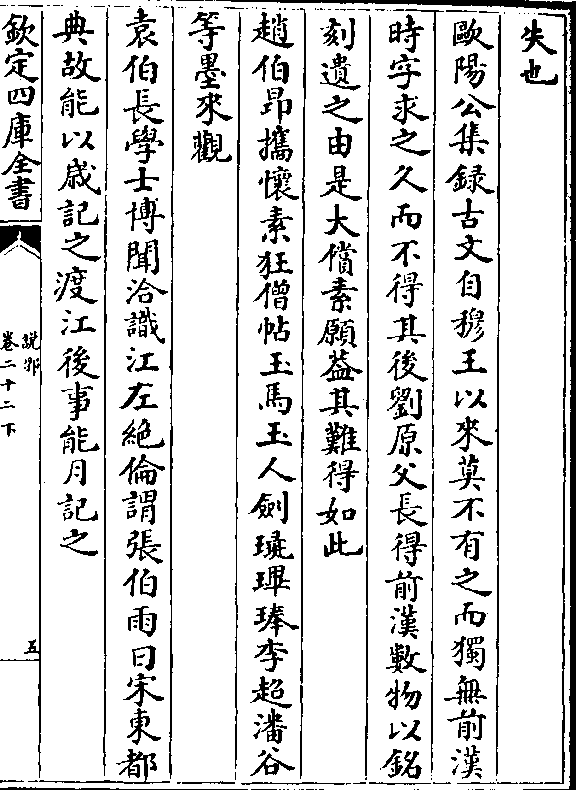 失也
歐陽公集録古文自穆王以來莫不有之而獨無前漢
時字求之久而不得其後劉原父長得前漢數物以銘
刻遺之由是大償素願葢其難得如此
趙伯昂攜懷素狂僧帖玉馬玉人劍璏琕琫李超潘谷
等墨來觀
袁伯長學士博聞洽識江左絶倫謂張伯雨曰宋東都
典故能以歳記之渡江後事能月記之
欽定四庫全書
説郛
卷二十二下
五